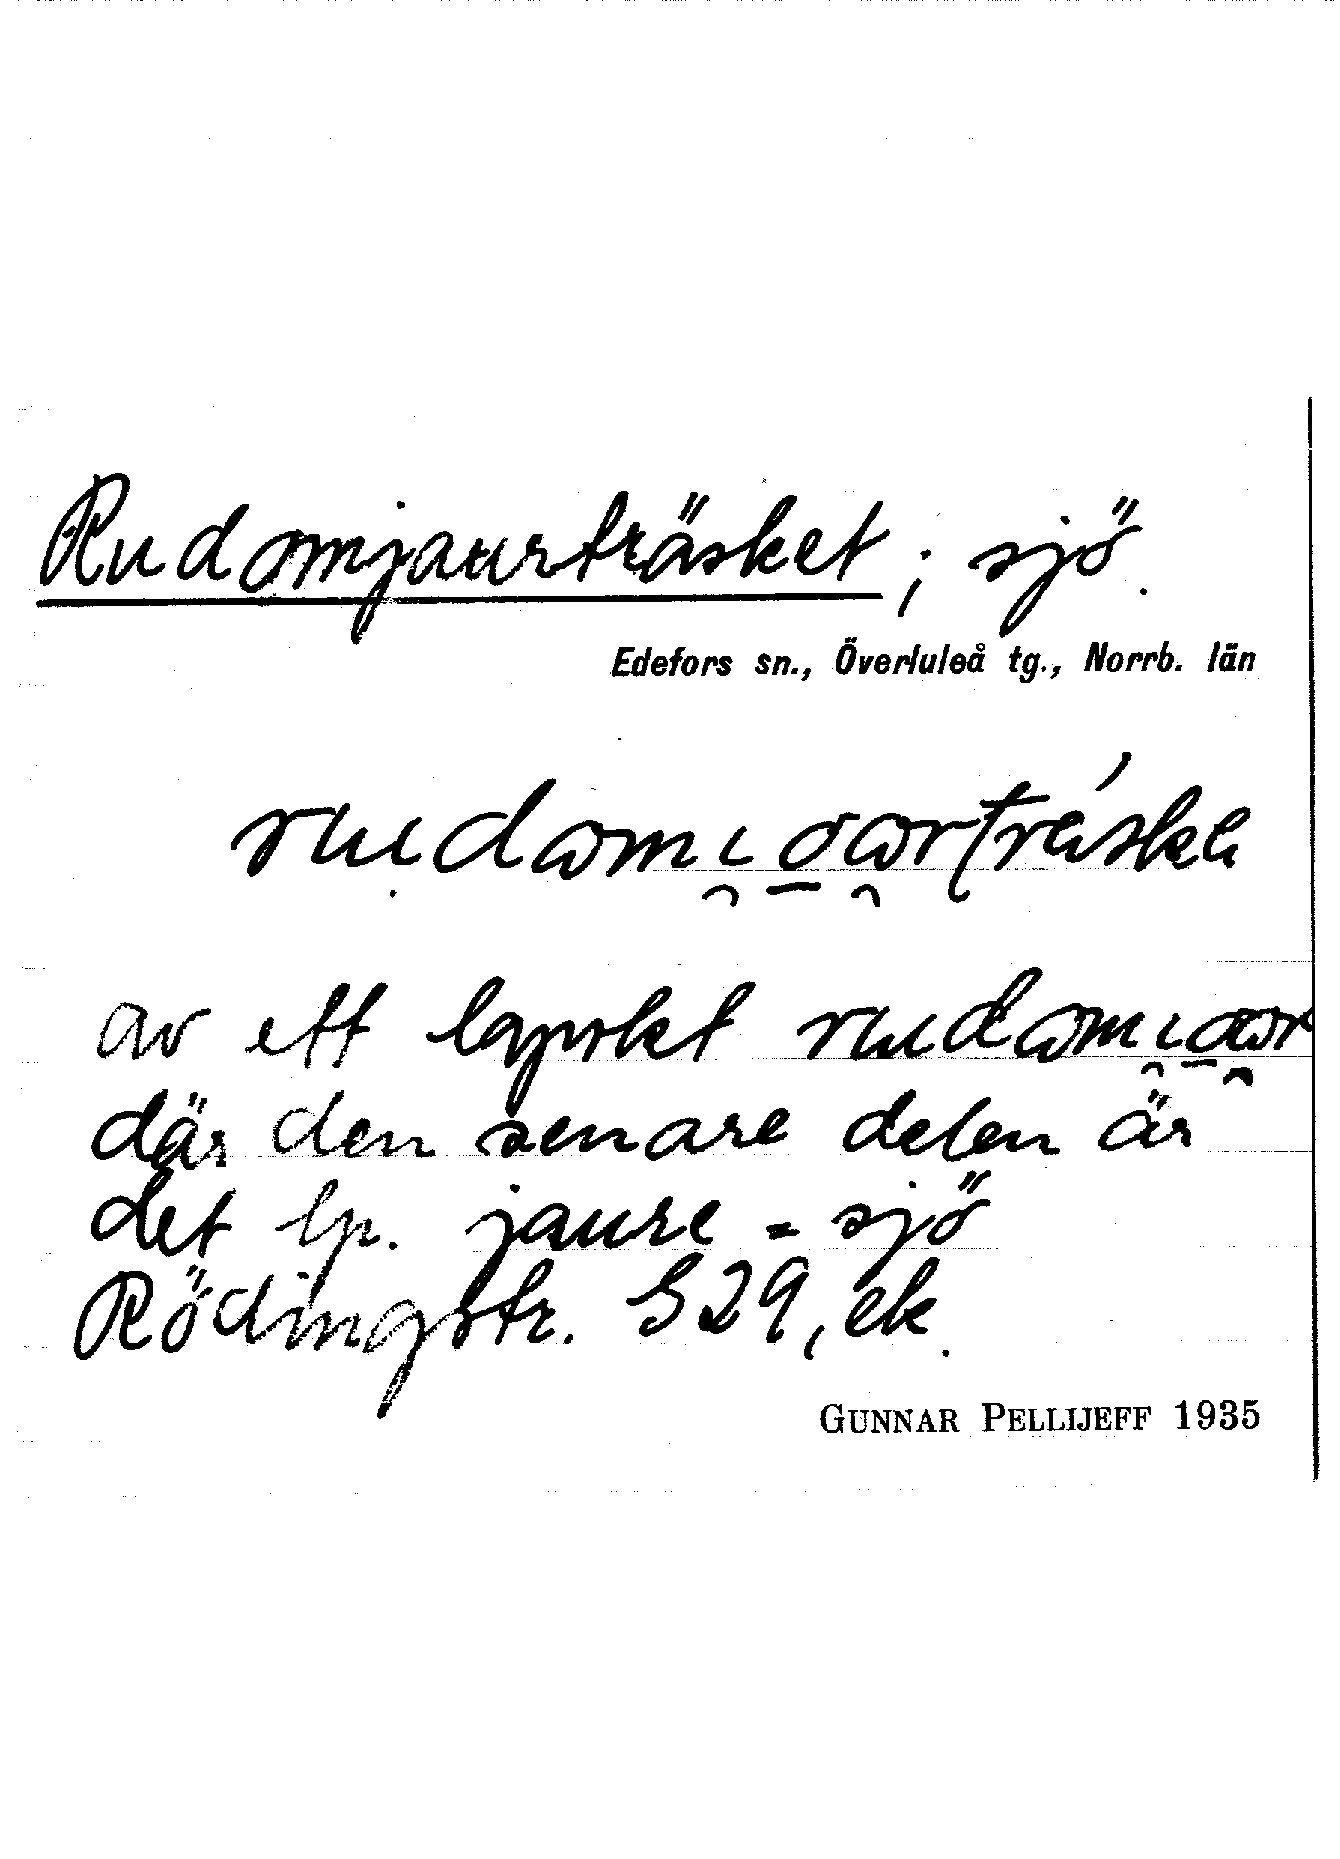 Rudomjaurträsket; sjö.
Edefors sn., Överluleå tg., Norrb. län
av ett lapskt
där den senare delen är
det lp. jaure = sjö
Rödingstr. S29, ek.
GUNNAR PELLIJEFF 1935